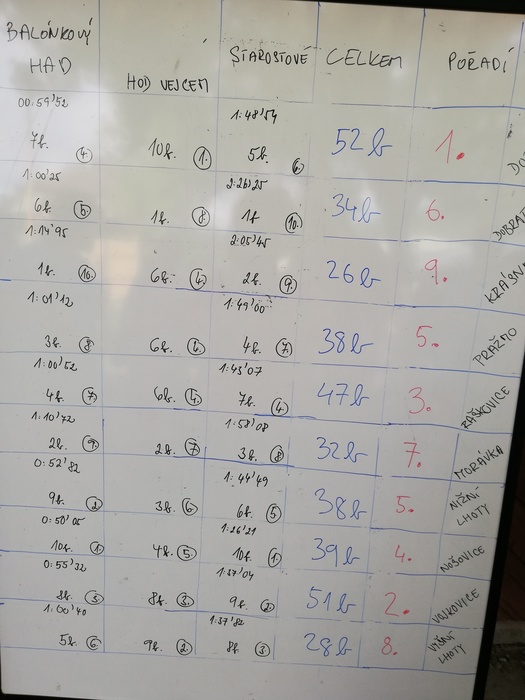 BALÓNKOVÝ HAD HOD VEJCEM STAROSTOVÉ CELKEM POŘADÍ
00:59'52 1:48'54
7b. 4 10b. 1. 5b. 6 52b 1.
1:00'25 2:26'25
6b. 5 1b. 8 1b 10. 34b 6. DOBRAT
1:14'95 2:05'45
1b. 10. 6b. 4. 2b. 9. 26b 9. KRÁSNÁ
1:01'12 1:49'00
3b. 8 6b. 4. 4b. 7. 38b 5. PRAŽMO
1:00'52 1:43'07
4b. 7 6b. 4. 7b. 4 47b 3.
1:10'72 1:58'08
2b. 9. 2b. 7 3b. 8 32b 7. MORÁVKA
0:52'82 1:44'49
9b. 2 3b. 6 6b. 5 38b 5. NIŽNÍ LHOTY
0:50'05 1:26'21
10b. 1 4b. 5 10b. 1 39b 4. NOŠOVICE
0:55'32 1:37'04
8b. 3 8b. 3 9b. 2 51b 2. VOJKOVICE
1:00'40 1:37'82
5b. 6 9b. 2 8b. 3 28b 8. VYŠNÍ LHOTY